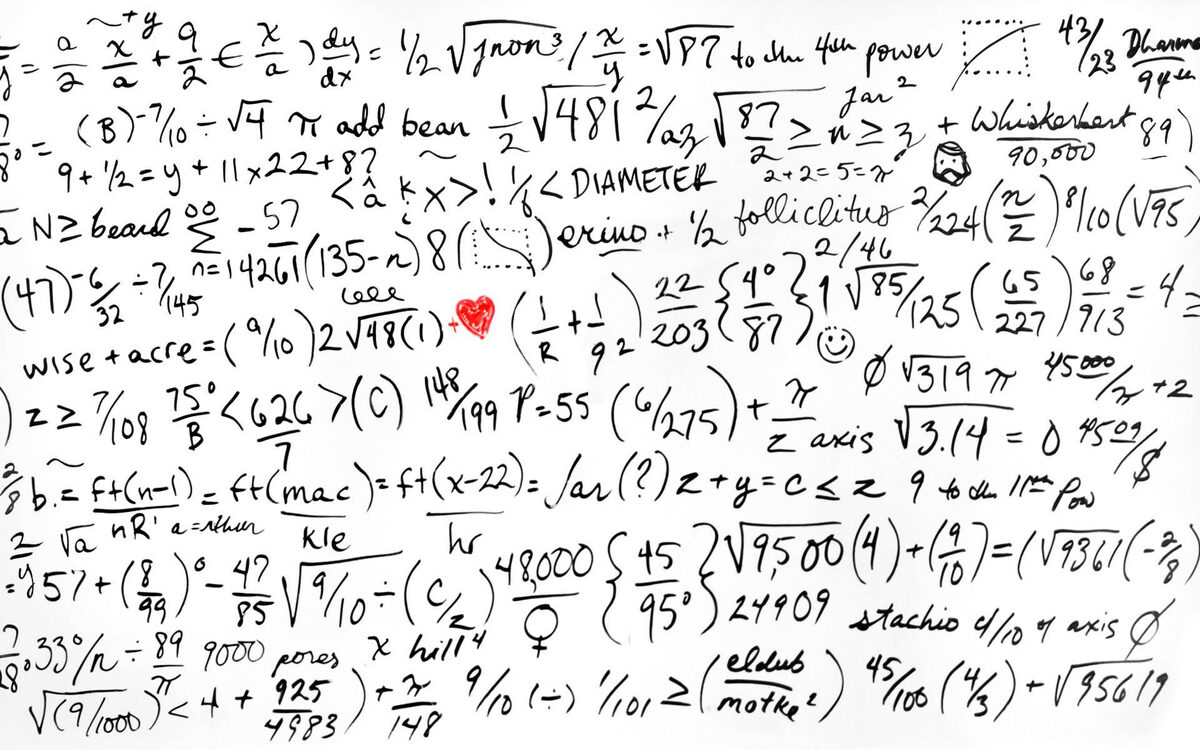 a/2 x/a + 9/2 ∈ x/a ) dy/dx = 1/2 √jnon³ / x/y = √87 to the 4th power 43/23 Dharma/94th
= (B)^-7/10 ÷ √4 π add bean 1/2 √481 2/az √87/2 ≥ n ≥ z Jar² + Whiskerbert/90,000 89)
9 + 1/2 = y + 11 x 22 + 87 < â k x > ! 1/6 < DIAMETER 2+2=5=π
N ≥ beard ∞ ∑ n=1 -57/4261 (135-n) 8 ( ) erino + 1/2 folliclitus 2/224 (n/z) 8/10 (√95)
(47)^-6/32 ÷ 7/145 eeee (1/R + 1/9 2) 22/203 {4°/87} 1 2/46 √85/125 (65/227) 68/913 = 4 =
wise + acre = (9/10) 2 √48(1) + ♥ ☺ Ø √319 π 45000/π + 2
) z ≥ 7/108 75°/B < 626/7 > (C) 148/199 P = 55 (6/275) + π/z axis √3.14 = 0 4509/$
2/8 b. = ft(n-1)/nR' = ft(mac)/kle = ft(x-22)/hr = Jar (?) z + y = c ≤ z 9 to the 11th Pow
2 √a
= y 57 + (8/99)° - 47/85 √9/10 ÷ (c/z) 48,000/♀ {45/95°} √9,500 (4) + (9/10) = (√9361 (-2/8)
24909 stachio 4/10 of axis Ø
33°/n ÷ 89/π 9000 pores x hill⁴
√(9/1000) < 4 + 925/4983 ) + π/148 9/10 (÷) 1/101 ≥ (eldub/motke²) 45/100 (4/3) + √95619